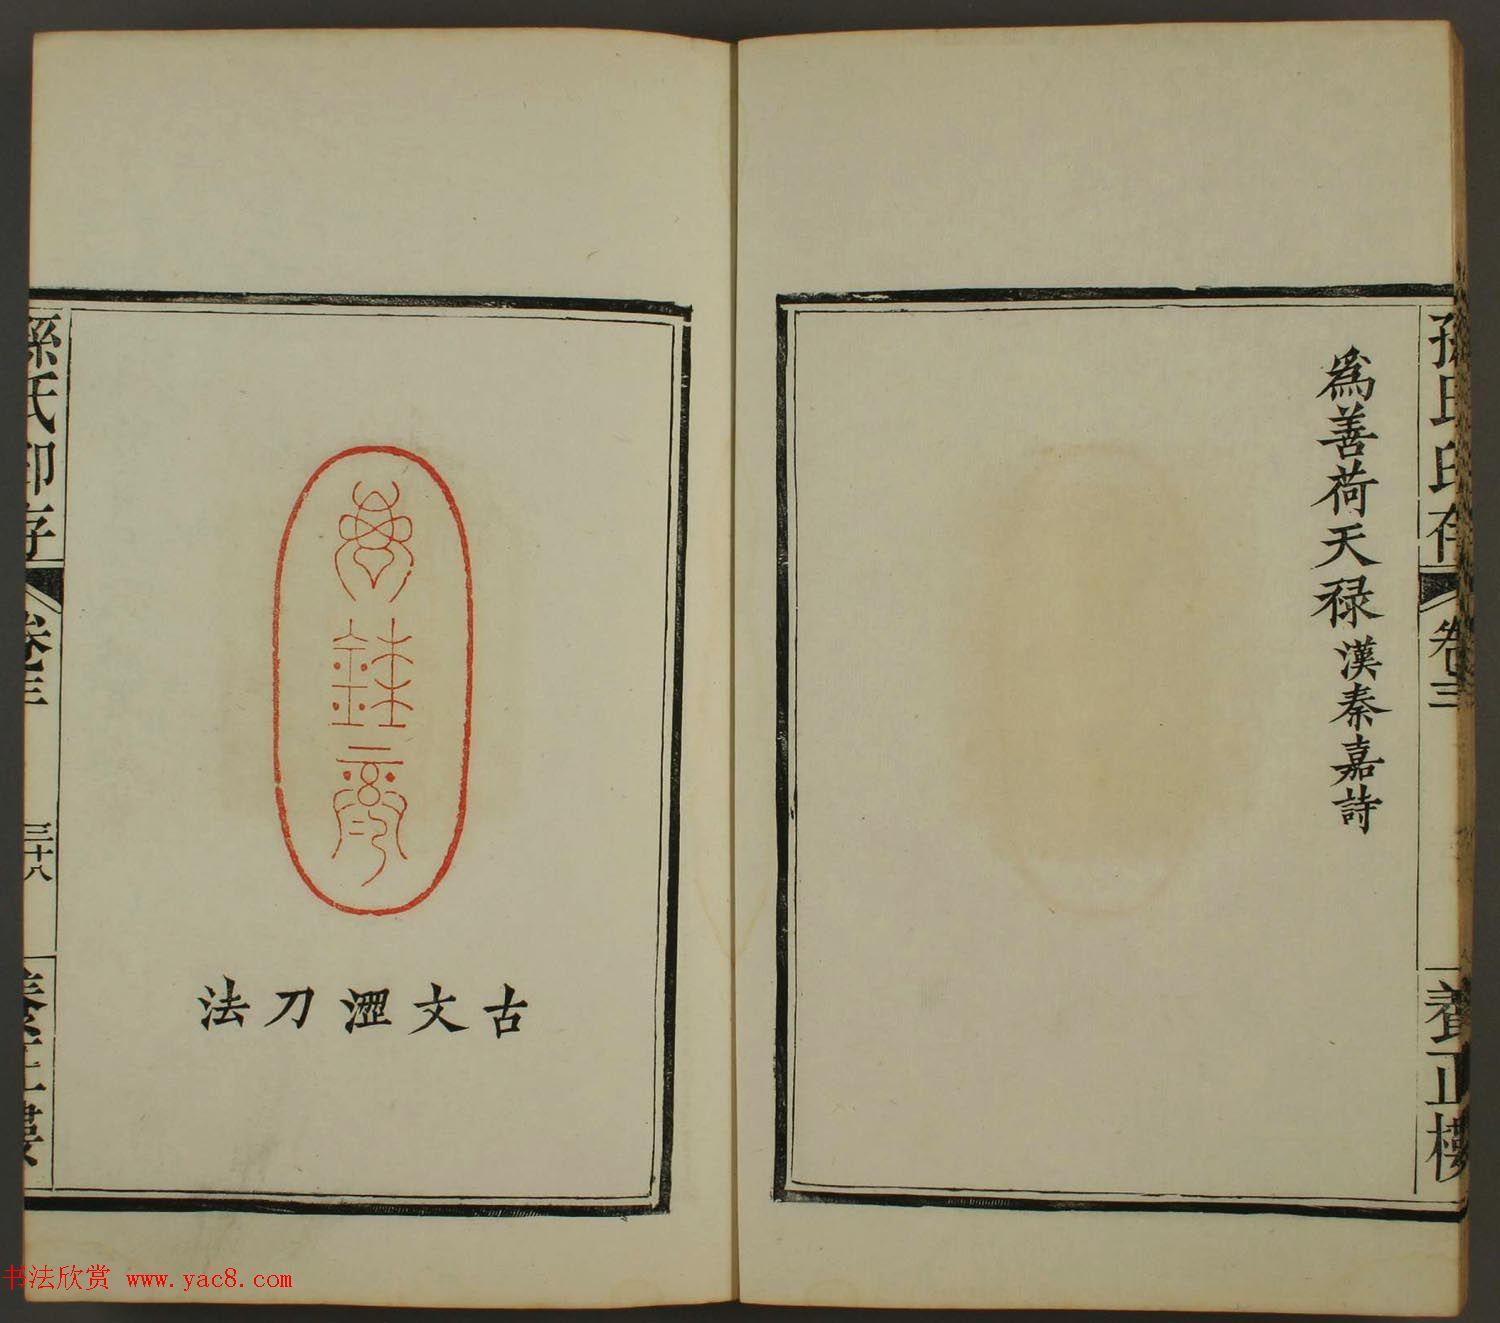 孫氏印存
卷三
養正樓
爲善荷天祿漢秦嘉詩
古文澀刀法
孫氏印存
卷三
三十八
養正樓
书法欣赏 www.yac8.com